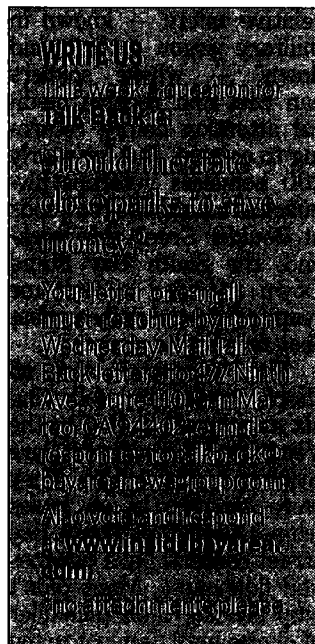 WRITE US
This week's question for
Talk Back is:
Should the state
close parks to save
money?
Your letter or e-mail
must reach us by noon
Wednesday. Mail Talk
Back letters to 477 Ninth
Ave., Suite 110, San Ma-
teo, CA 94402; e-mail
responses to talkback@
bayareanewsgroup.com.
Also vote and respond
at www.insidebayarea.
com.
*no attachments, please